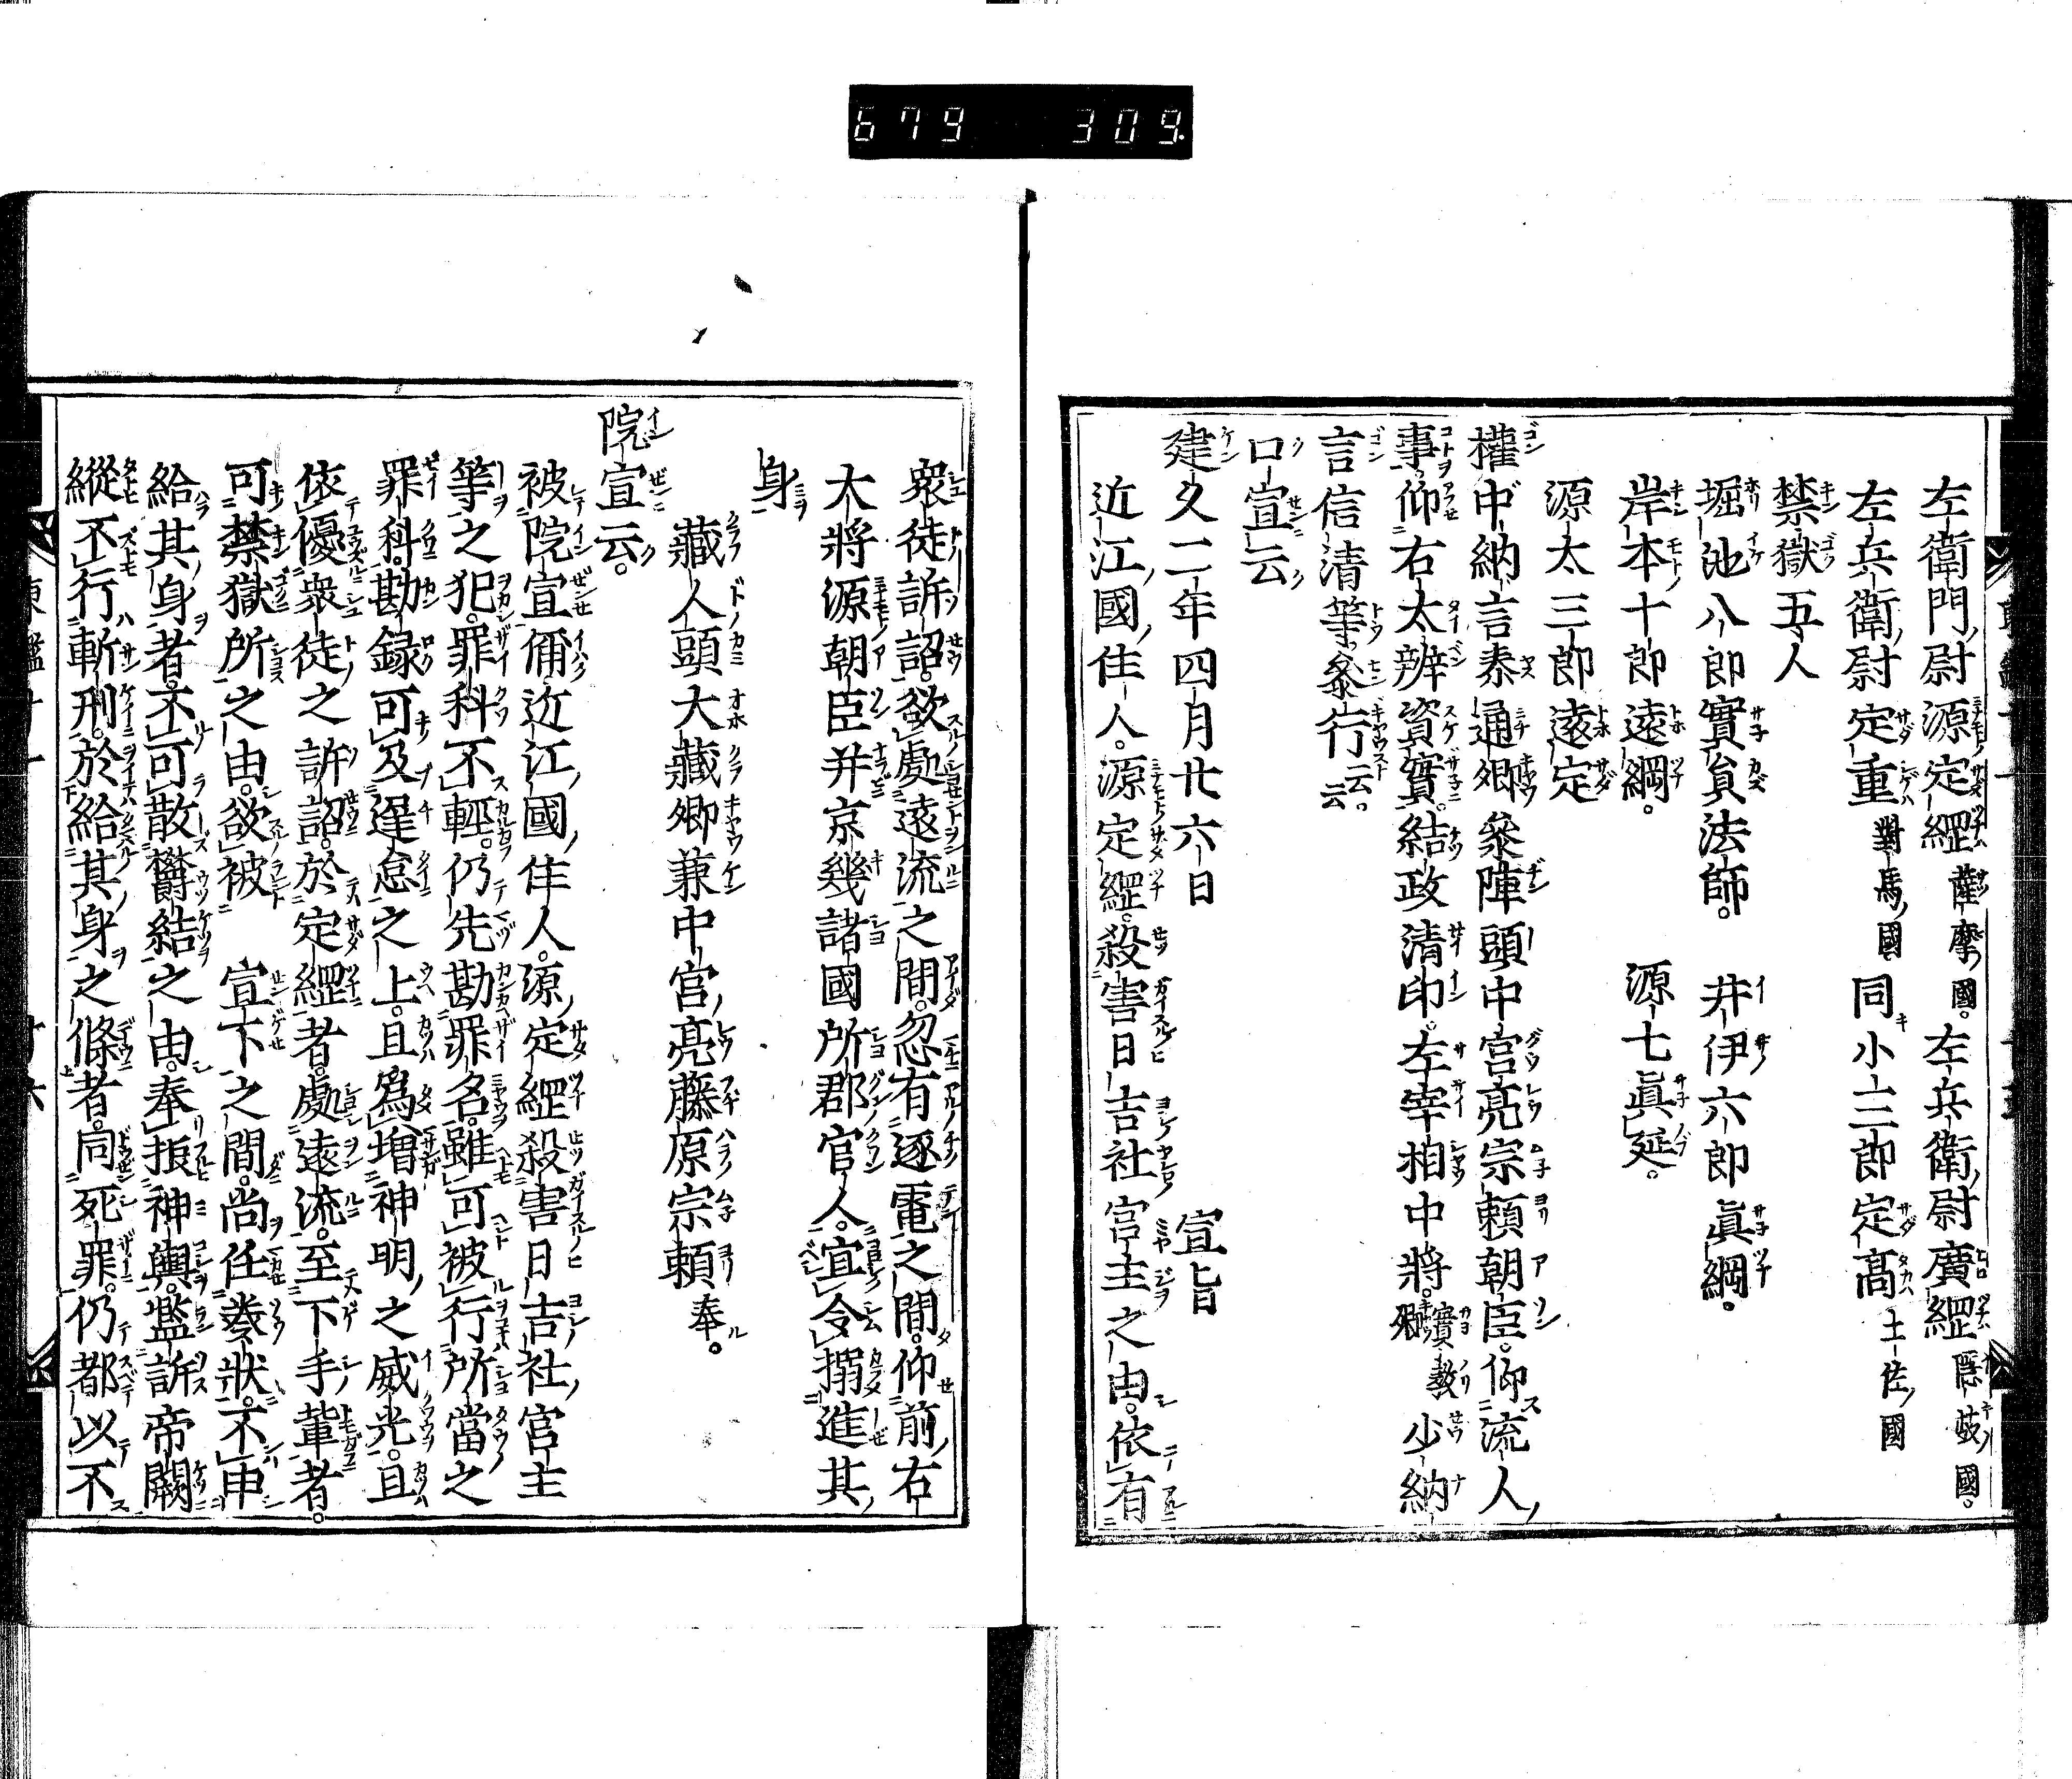 679 309
左衛門尉源定綱薩摩國。左兵衛尉廣綱隠岐國。
左兵衛尉定重對馬國同小三郎定髙土佐國
禁獄五人
堀池八郎實員法師。井伊六郎眞綱。
岸本十郎遠綱。源七眞延。
源太三郎遠定
權中納言泰通卿參陣頭中宮亮宗頼朝臣。仰流人
事。仰右大辨資實。結政清印。左宰相中將。實敎卿少納
言信清等參行云云。
口宣云
建久二年四月廿六日宣旨
近江國住人。源定綱。殺害日吉社宮主之由。依有
衆徒訴詔。欲處遠流之間。忽有逐電之間。仰前右
大將源朝臣并京幾諸國所郡官人。宜令搦進其
身
藏人頭大藏卿兼中宮亮藤原宗頼奉。
院宣云。
被院宣偁近江國住人。源定綱殺害日吉社宮主
等之犯。罪科不輕。仍先勘罪名。雖可被行所當之
罪科。勘録可及遅怠之上。且爲増神明之威光。且
依優衆徒之訴詔。於定綱者。處遠流。至下手輩者。
可禁獄所之由。欲被宣下之間。尚任奏狀。不申
給其身者。不可散欝結之由。奉振神輿。濫訴帝闕
縱不行斬刑。於給其身之條者。同死罪。仍都以不